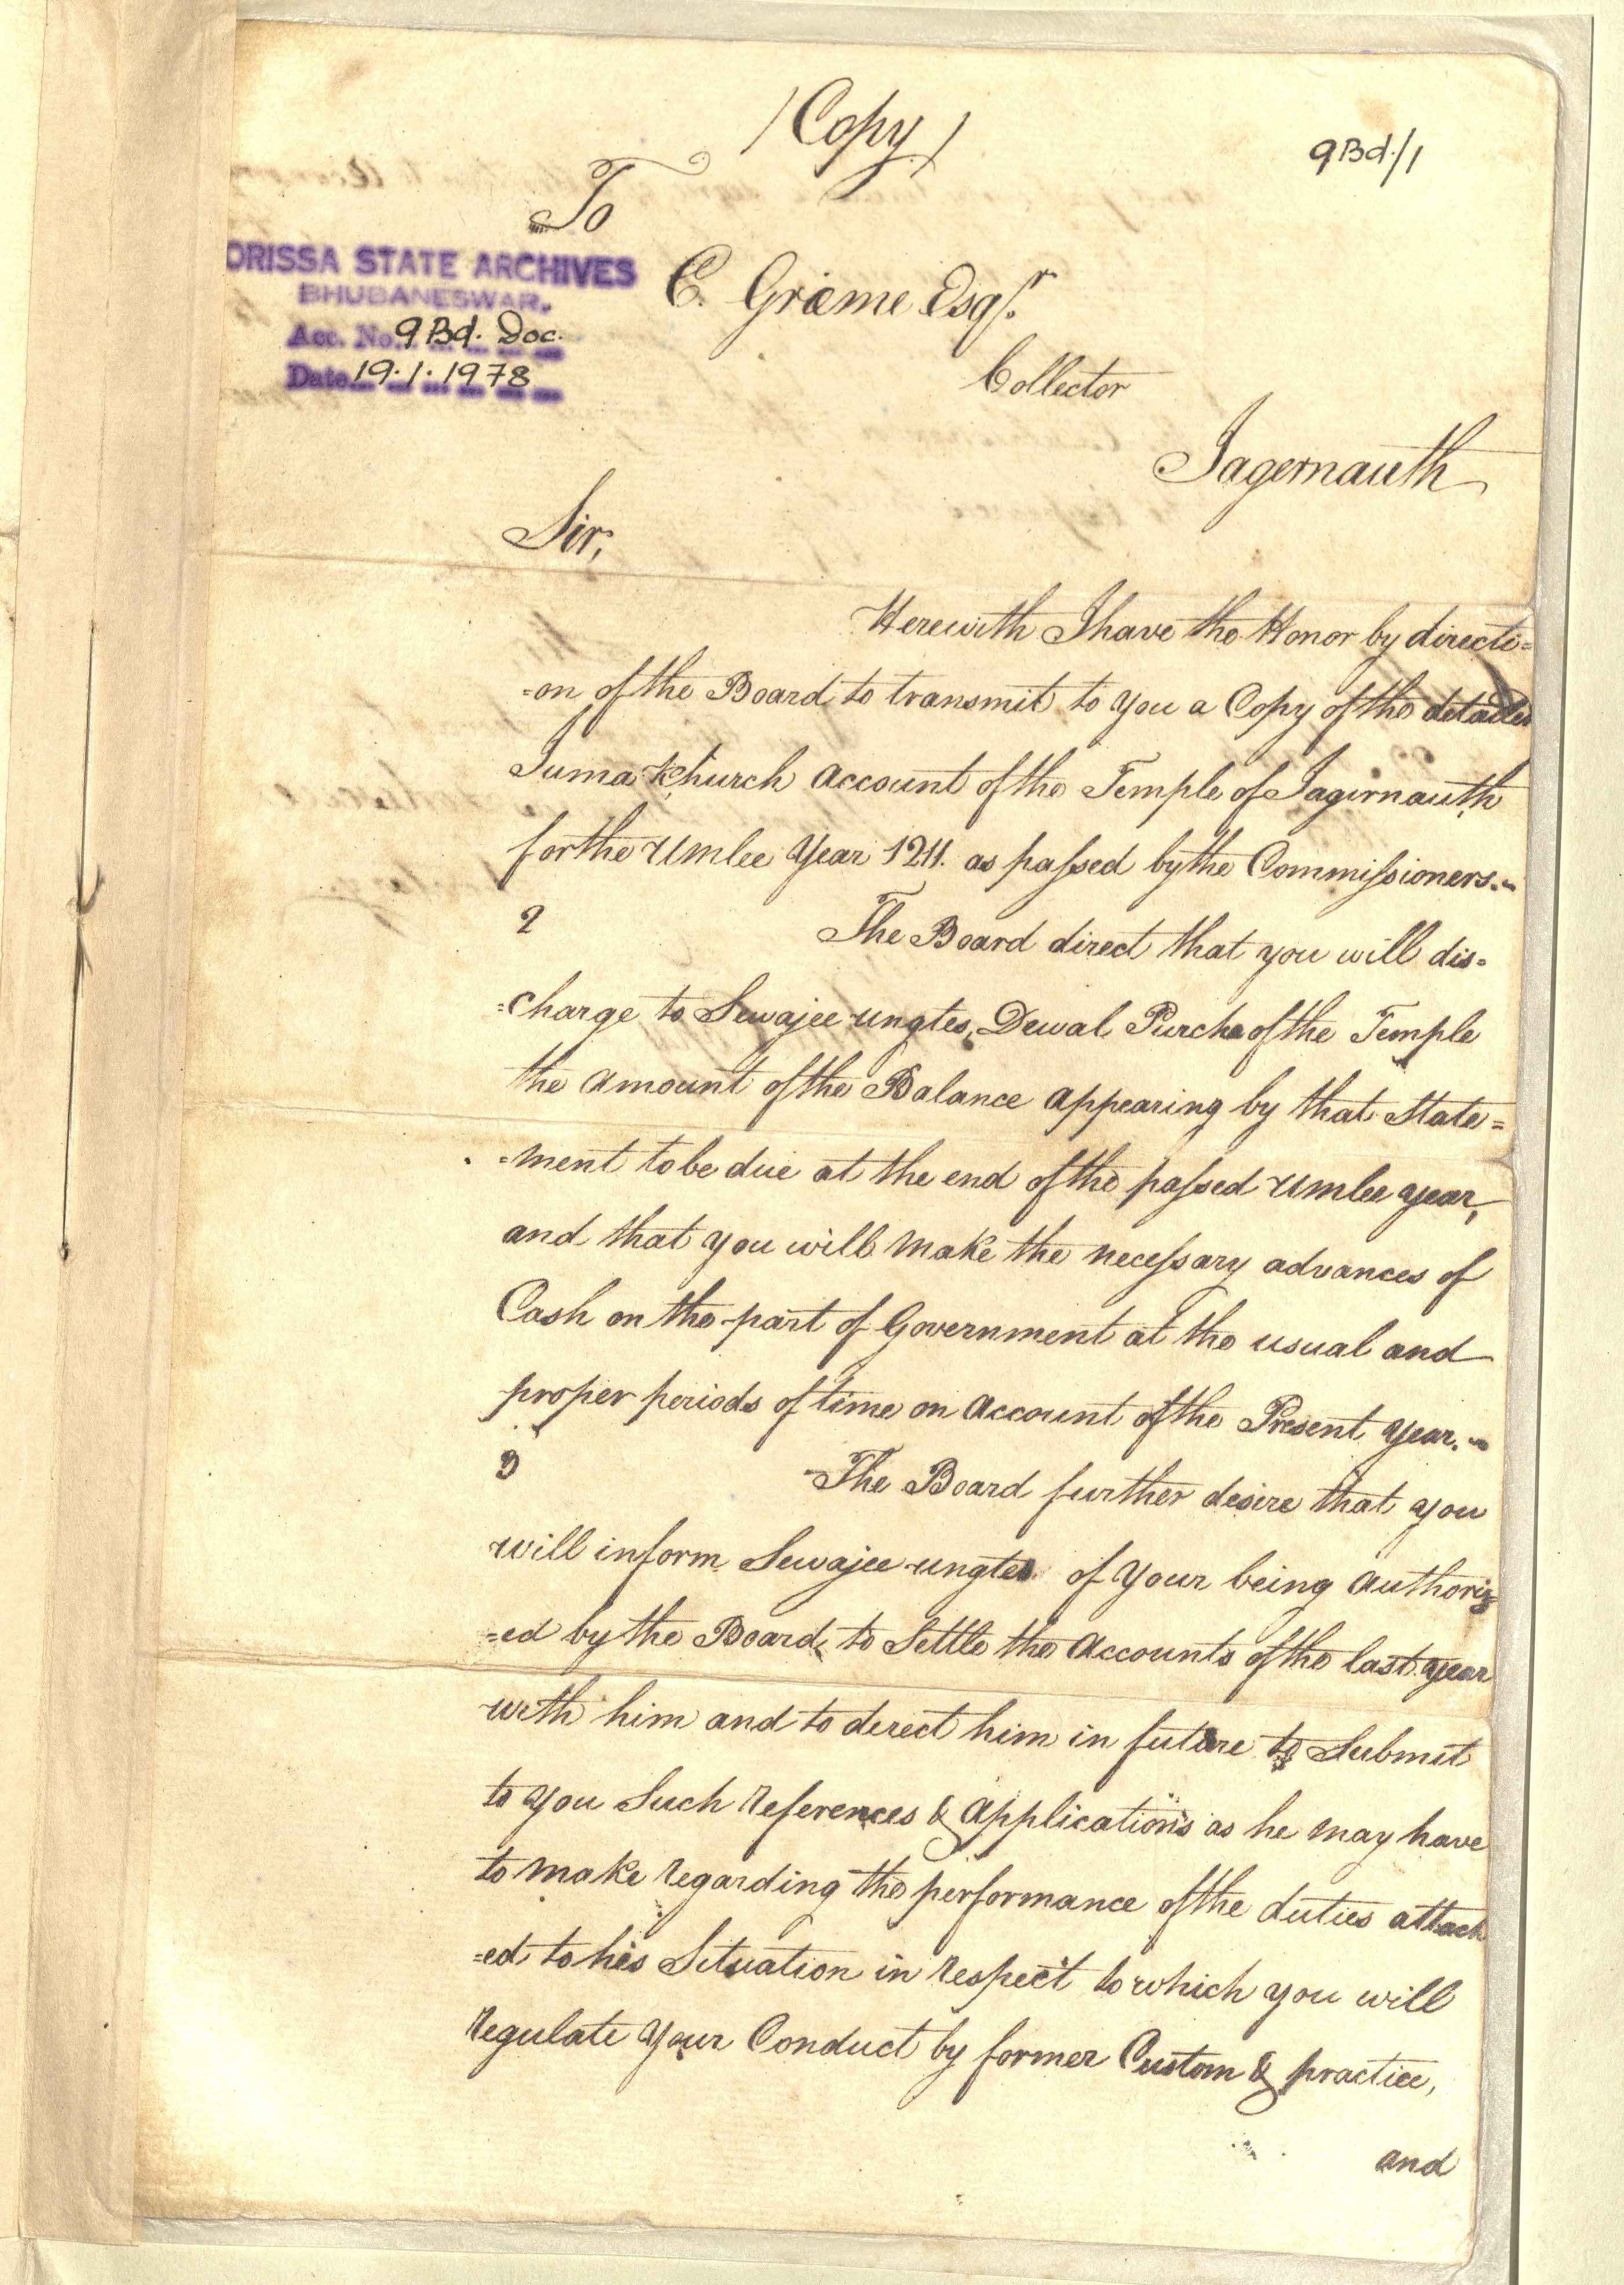 /Copy/
9Bd./1
To
ORISSA STATE ARCHIVES
BHUBANESWAR.
Acc. No. 9 Bd. Doc.
Date 19.1.1978
C. Græme Esqr.
Collector
Jagernauth
Sir,
Herewith I have the Honor by directi=
=on of the Board to transmit to you a Copy of the detailed
Juma Khurch account of the Temple of Jagirnauth
for the Umlee Year 1211. as passed by the Commissioners.
2 The Board direct that you will dis=
=charge to Sewajee ungtes, Dewal Purcha of the Temple
the amount of the Balance appearing by that State=
=ment to be due at the end of the passed Umlee year,
and that you will make the necessary advances of
Cash on the part of Government at the usual and
proper periods of time on account of the Present year.
3 The Board further desire that you
will inform Sewajee ungtes of your being authoriz
=ed by the Board, to Settle the accounts of the last year
with him and to derect him in future to Submit
to you Such references & applications as he may have
to make regarding the performance of the duties attach
=ed to his Situation in respect to which you will
regulate your Conduct by former Custom & practice,
and